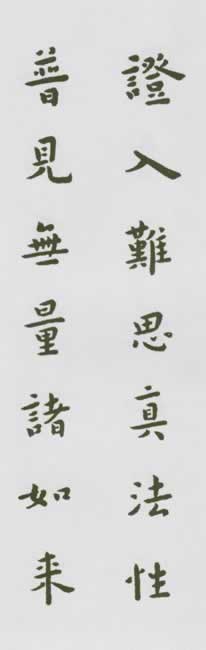 證入難思真法性
普見無量諸如来